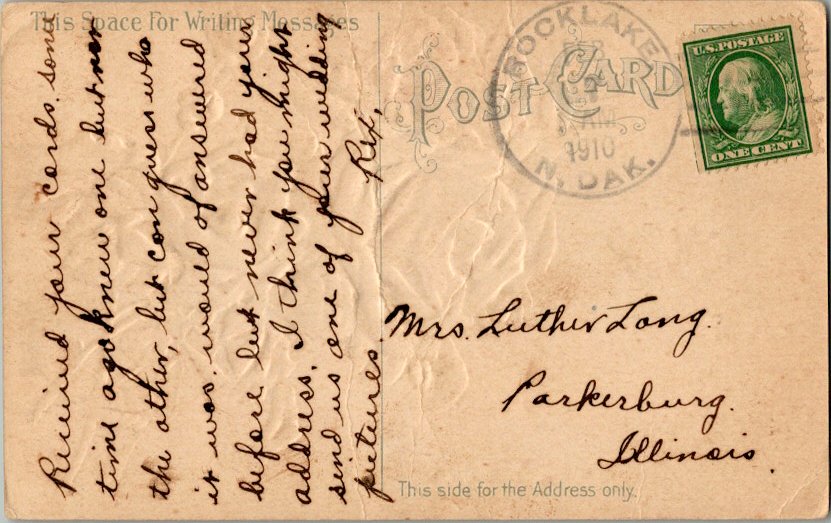 This Space For Writing Messages
Recieved your cards some
time ago knew one but not
the other, but can guess who
it was. would of answered
before but never had your
address. I think you might
send us one of your wedding
pictures. Rex,
POST CARD
ROCKLAKE
AM
1910
N. DAK.
U.S. POSTAGE
ONE CENT
Mrs. Luther Long.
Parkerburg.
Illinois.
This side for the Address only.